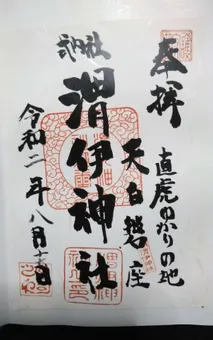 奉拝
直虎ゆかりの地
天白磐座
式内社
渭伊神社
令和二年八月十五日